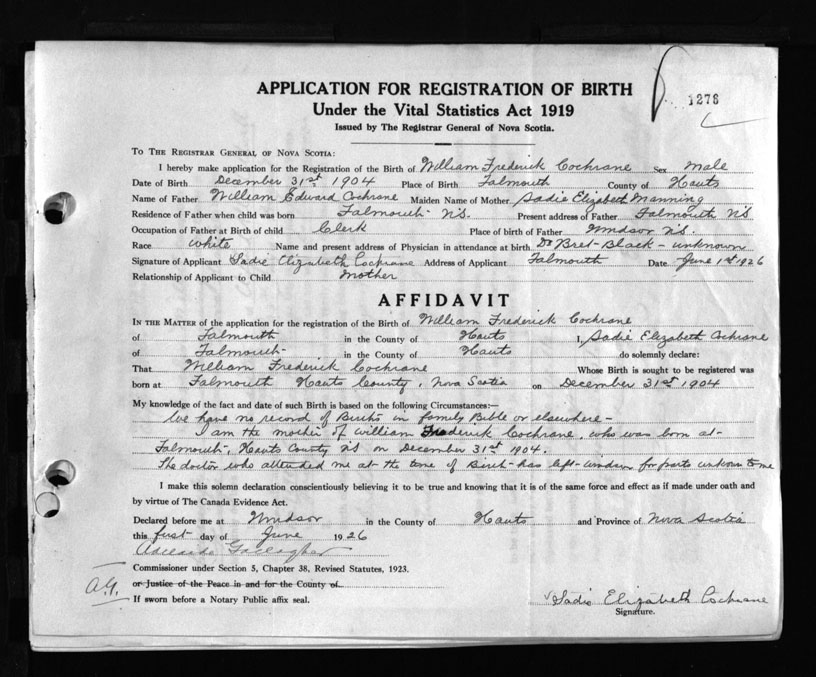 APPLICATION FOR REGISTRATION OF BIRTH
1278
Under the Vital Statistics Act 1919
Issued by The Registrar General of Nova Scotia.
To The Registrar General of Nova Scotia:
I hereby make application for the Registration of the Birth of William Frederick Cochrane Sex Male
Date of Birth December 31st 1904 Place of Birth Falmouth County of Hants
Name of Father William Edward Cochrane Maiden Name of Mother Sadie Elizabeth Manning
Residence of Father when child was born Falmouth N.S. Present address of Father Falmouth N.S
Occupation of Father at Birth of child Clerk Place of birth of Father Windsor N.S.
Race white Name and present address of Physician in attendance at birth Dr Black - unknown
Signature of Applicant Sadie Elizabeth Cochrane Address of Applicant Falmouth Date June 1st 1926
Relationship of Applicant to Child Mother
AFFIDAVIT
In the Matter of the application for the registration of the Birth of William Frederick Cochrane
of Falmouth in the County of Hants I, Sadie Elizabeth Cochrane
of Falmouth in the County of Hants do solemnly declare:
That William Frederick Cochrane Whose Birth is sought to be registered was
born at Falmouth Hants County, Nova Scotia on December 31st 1904
My knowledge of the fact and date of such Birth is based on the following Circumstances:—
We have no record of Births in family Bible or elsewhere -
I am the mother of William Frederick Cochrane, who was born at
Falmouth, Hants County NS on December 31st 1904.
The doctor who attended me at the time of Birth has left Windsor for parts unknown to me
I make this solemn declaration conscientiously believing it to be true and knowing that it is of the same force and effect as if made under oath and
by virtue of The Canada Evidence Act.
Declared before me at Windsor in the County of Hants and Province of Nova Scotia
this first day of June 1926
Adelaide Gallagher
Commissioner under Section 5, Chapter 38, Revised Statutes, 1923.
or Justice of the Peace in and for the County of
A.G.
If sworn before a Notary Public affix seal.
Sadie Elizabeth Cochrane
Signature.